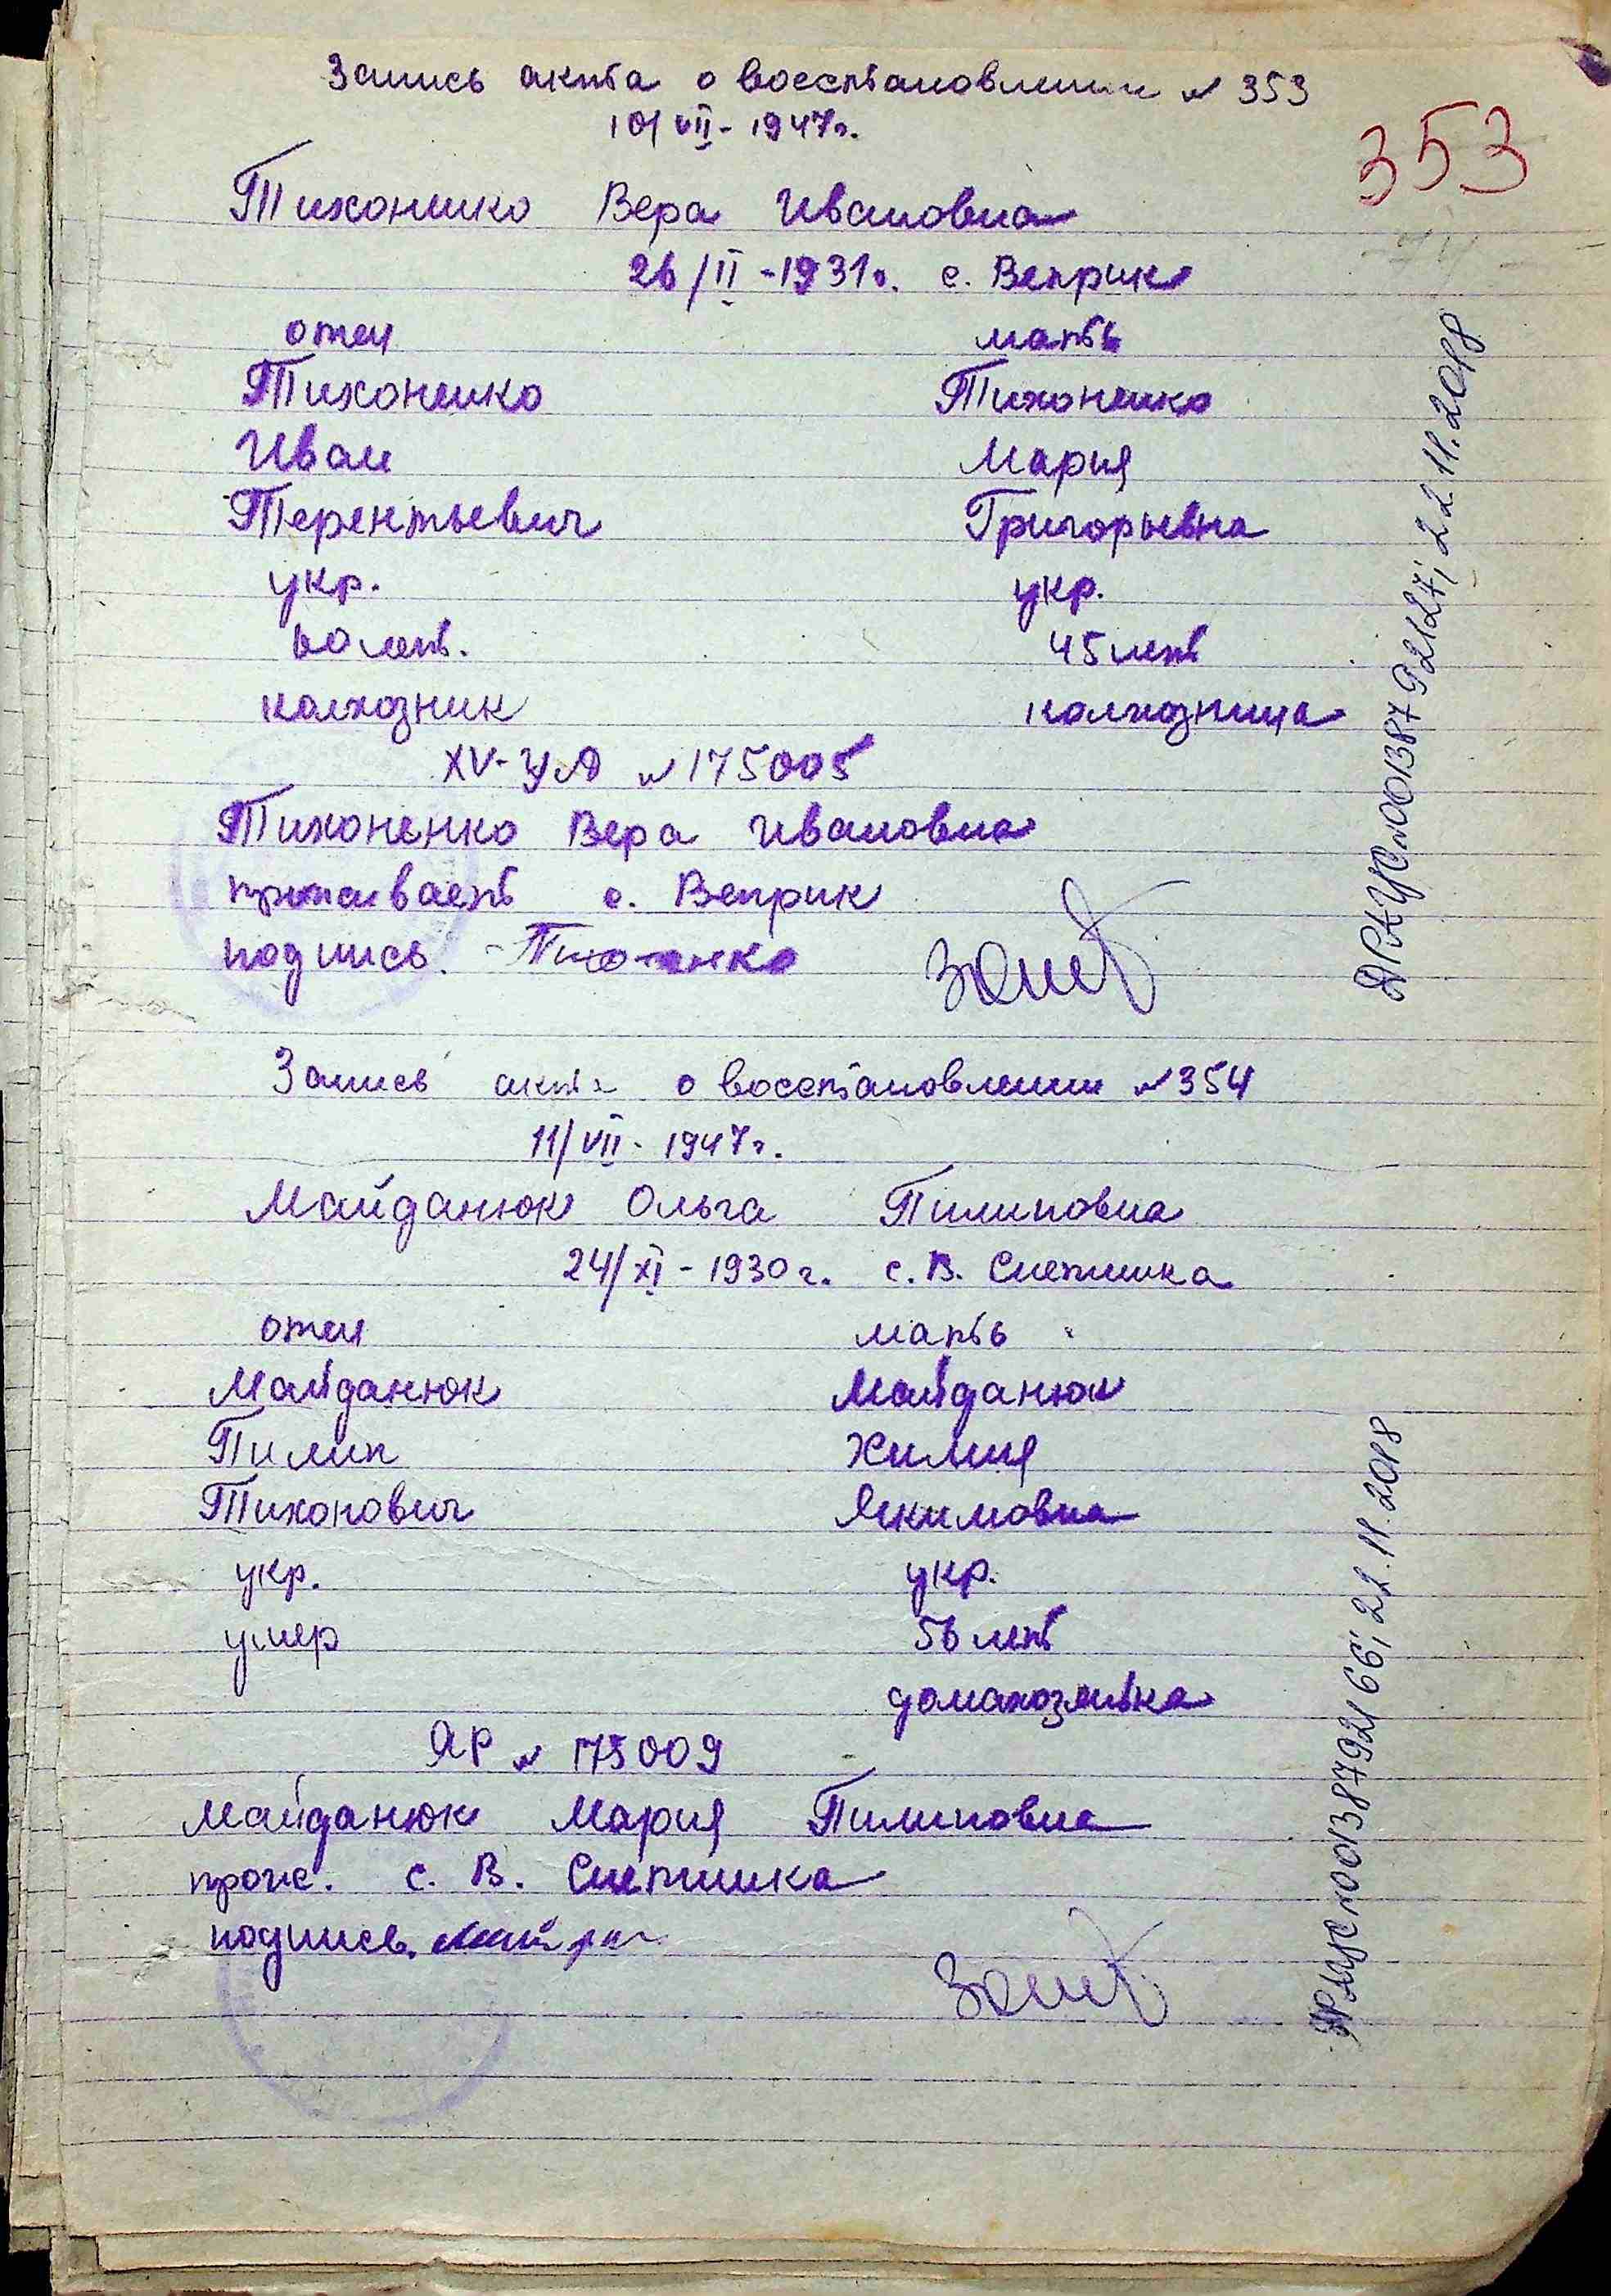 Запись акта о восстановлении № 353
10/VII - 1947г.
353
Тихоненко Вера Ивановна
26/II - 1931г. с. Веприк
отец мать
Тихоненко Тихоненко
Иван Мария
Терентьевич Григорьевна
укр. укр.
60 лет. 45 лет
колхозник колхозница
XV-УЛ № 175005
Тихоненко Вера Ивановна
проживает с. Веприк
подпись. Тихоненко
ДРАЦС №00138792127; 22.11.2018
Запись акта о восстановлении № 354
11/VII - 1947г.
Майданюк Ольга Пилиповна
24/XI - 1930г. с. В. Снетинка
отец мать
Майданюк Майданюк
Пилип Химия
Тихонович Якимовна
укр. укр.
умер 56 лет
домахозяйка
ЯР № 175009
Майданюк Мария Пилиповна
прож. с. В. Снетинка
подпись.
ДРАЦС №00138792166; 22.11.2018